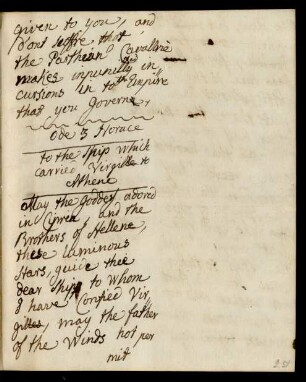 given to you, and
Dont soffre, that
the Parthean Cavallrie
makes inpunelly in
cursions in to th Empire
that you Governe,
Ode 3 Horace
to the Ship which
carried Virgille to
Athene
May the Goddes adored
in Cyren, and the
Brothers of Hellene,
these luminous
stars, guide thee
dear Ship, to Whom
I have Confied Vir
gilles, may the father
of the Winds not per
mit